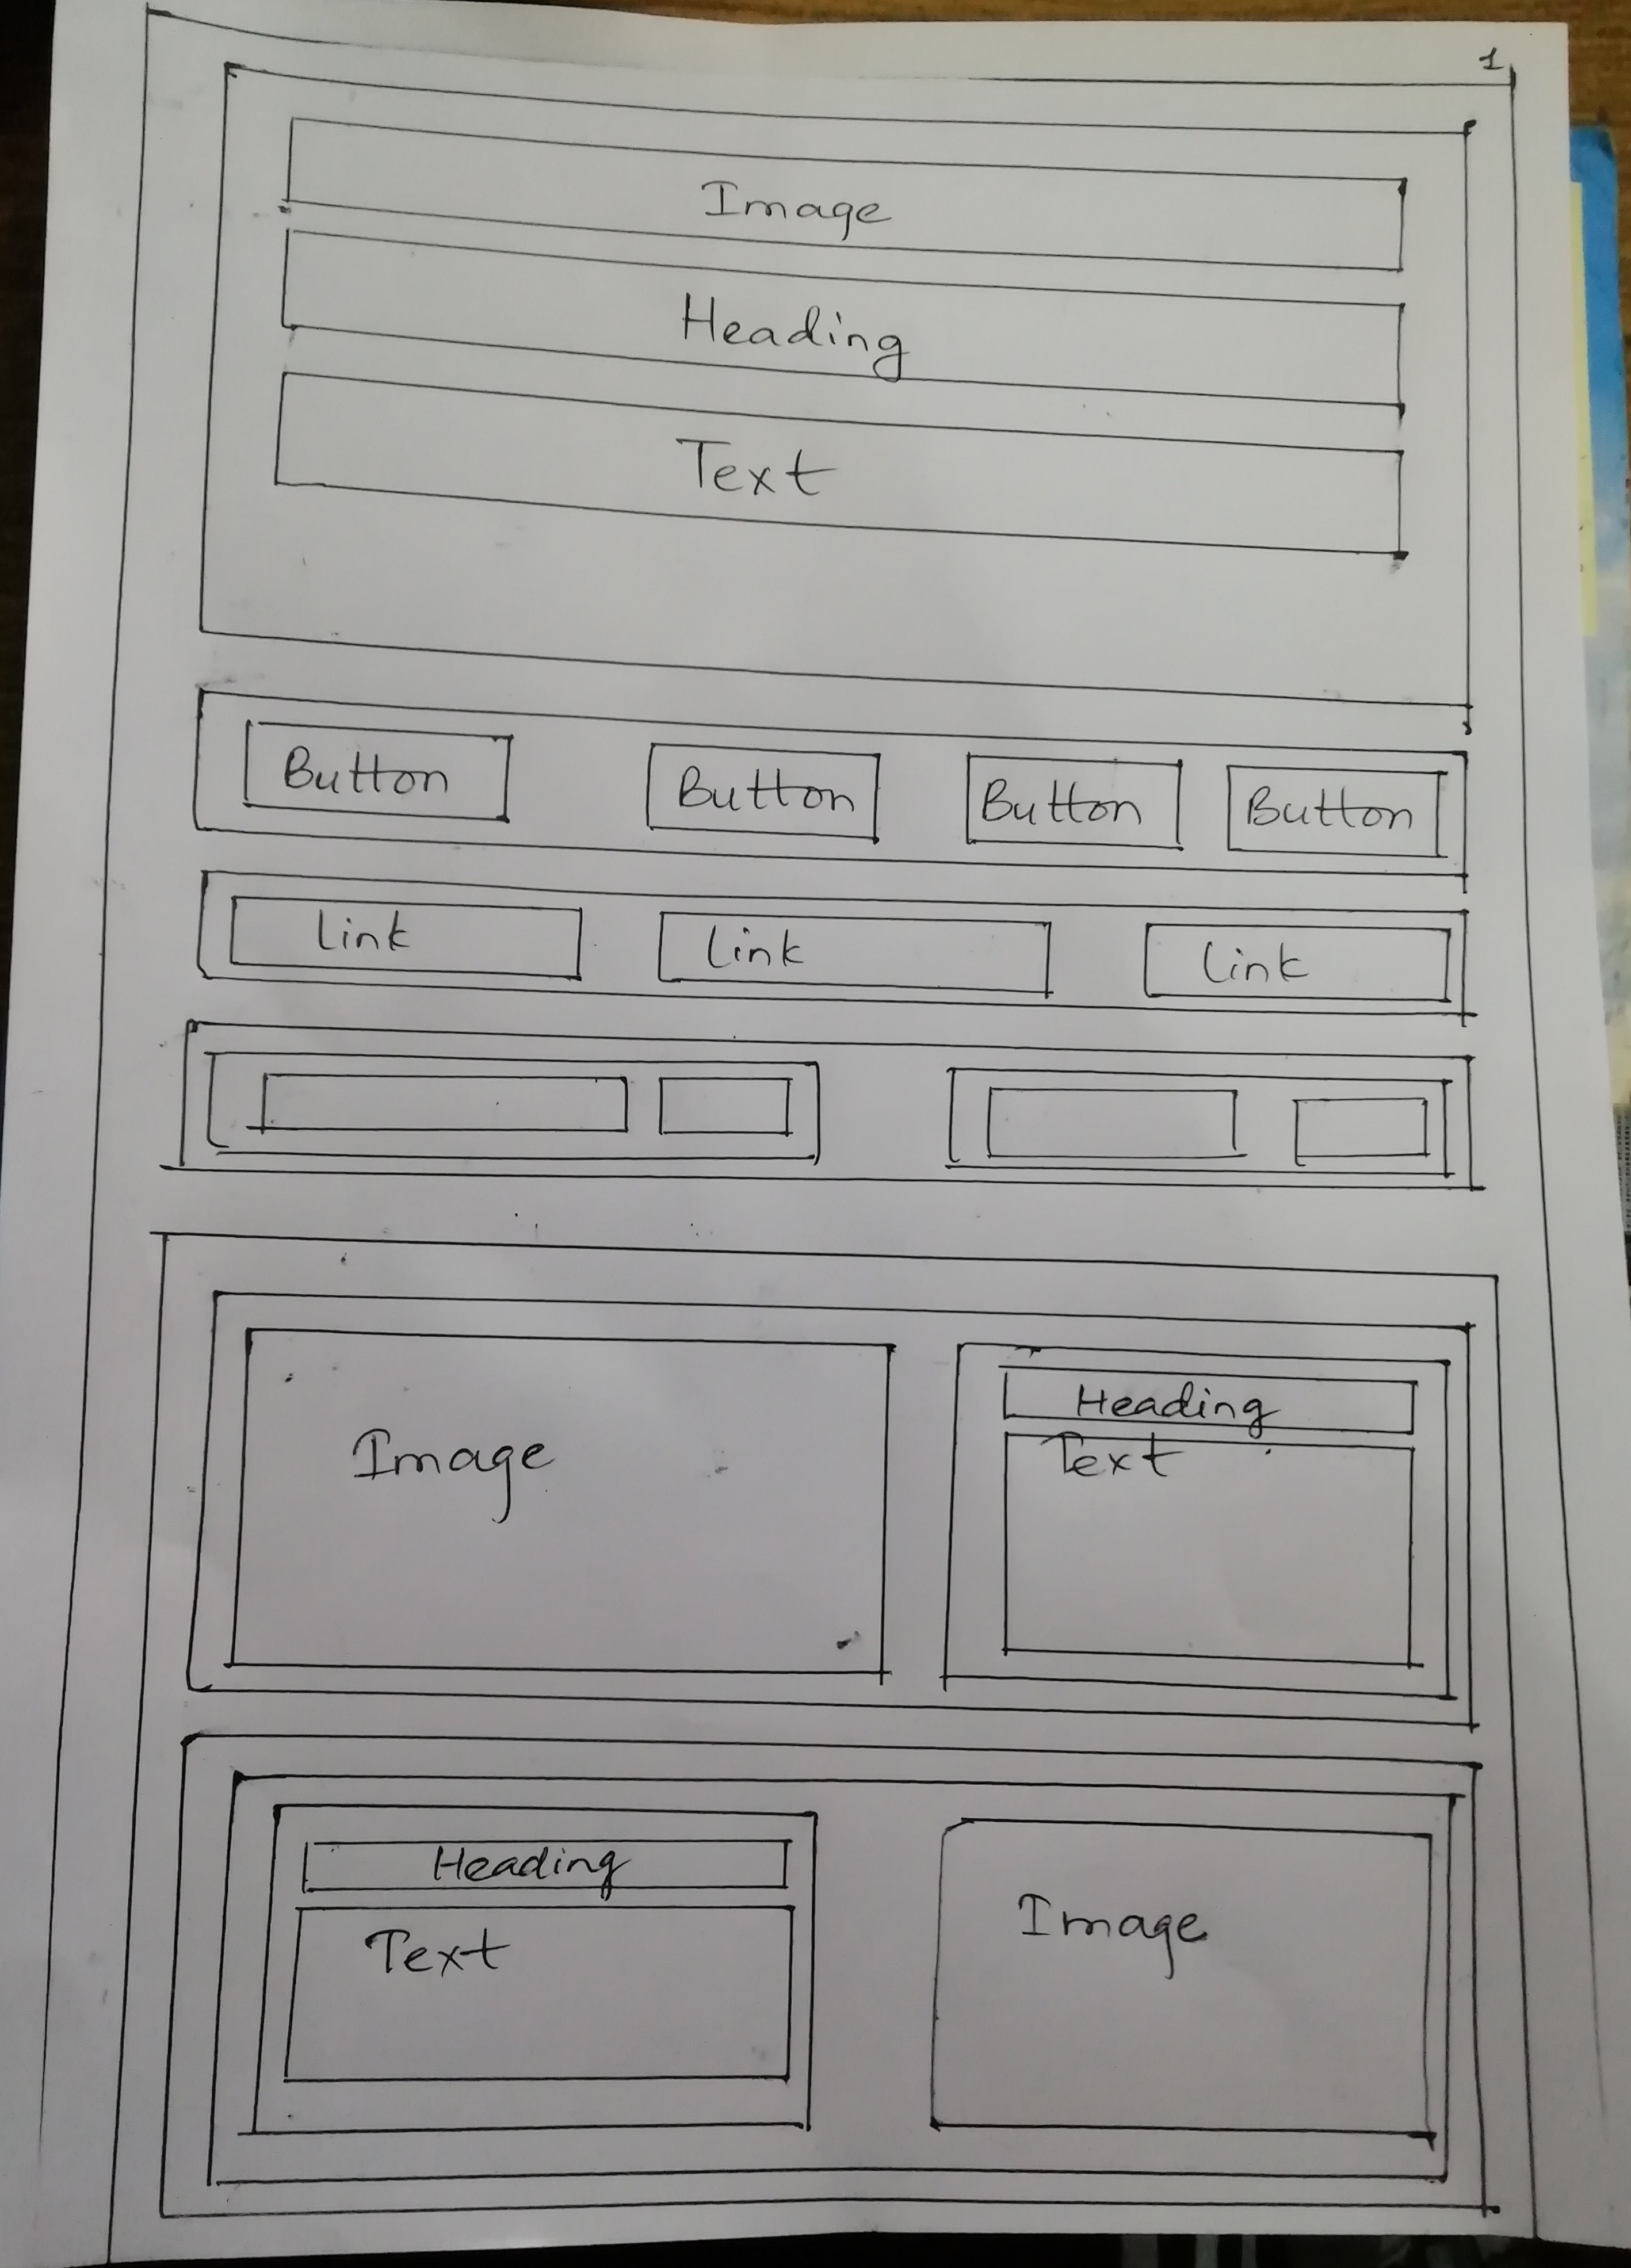 1
Image
Heading
Text
Button Button Button Button
Link Link Link
Image
Heading
Text
Heading
Text
Image